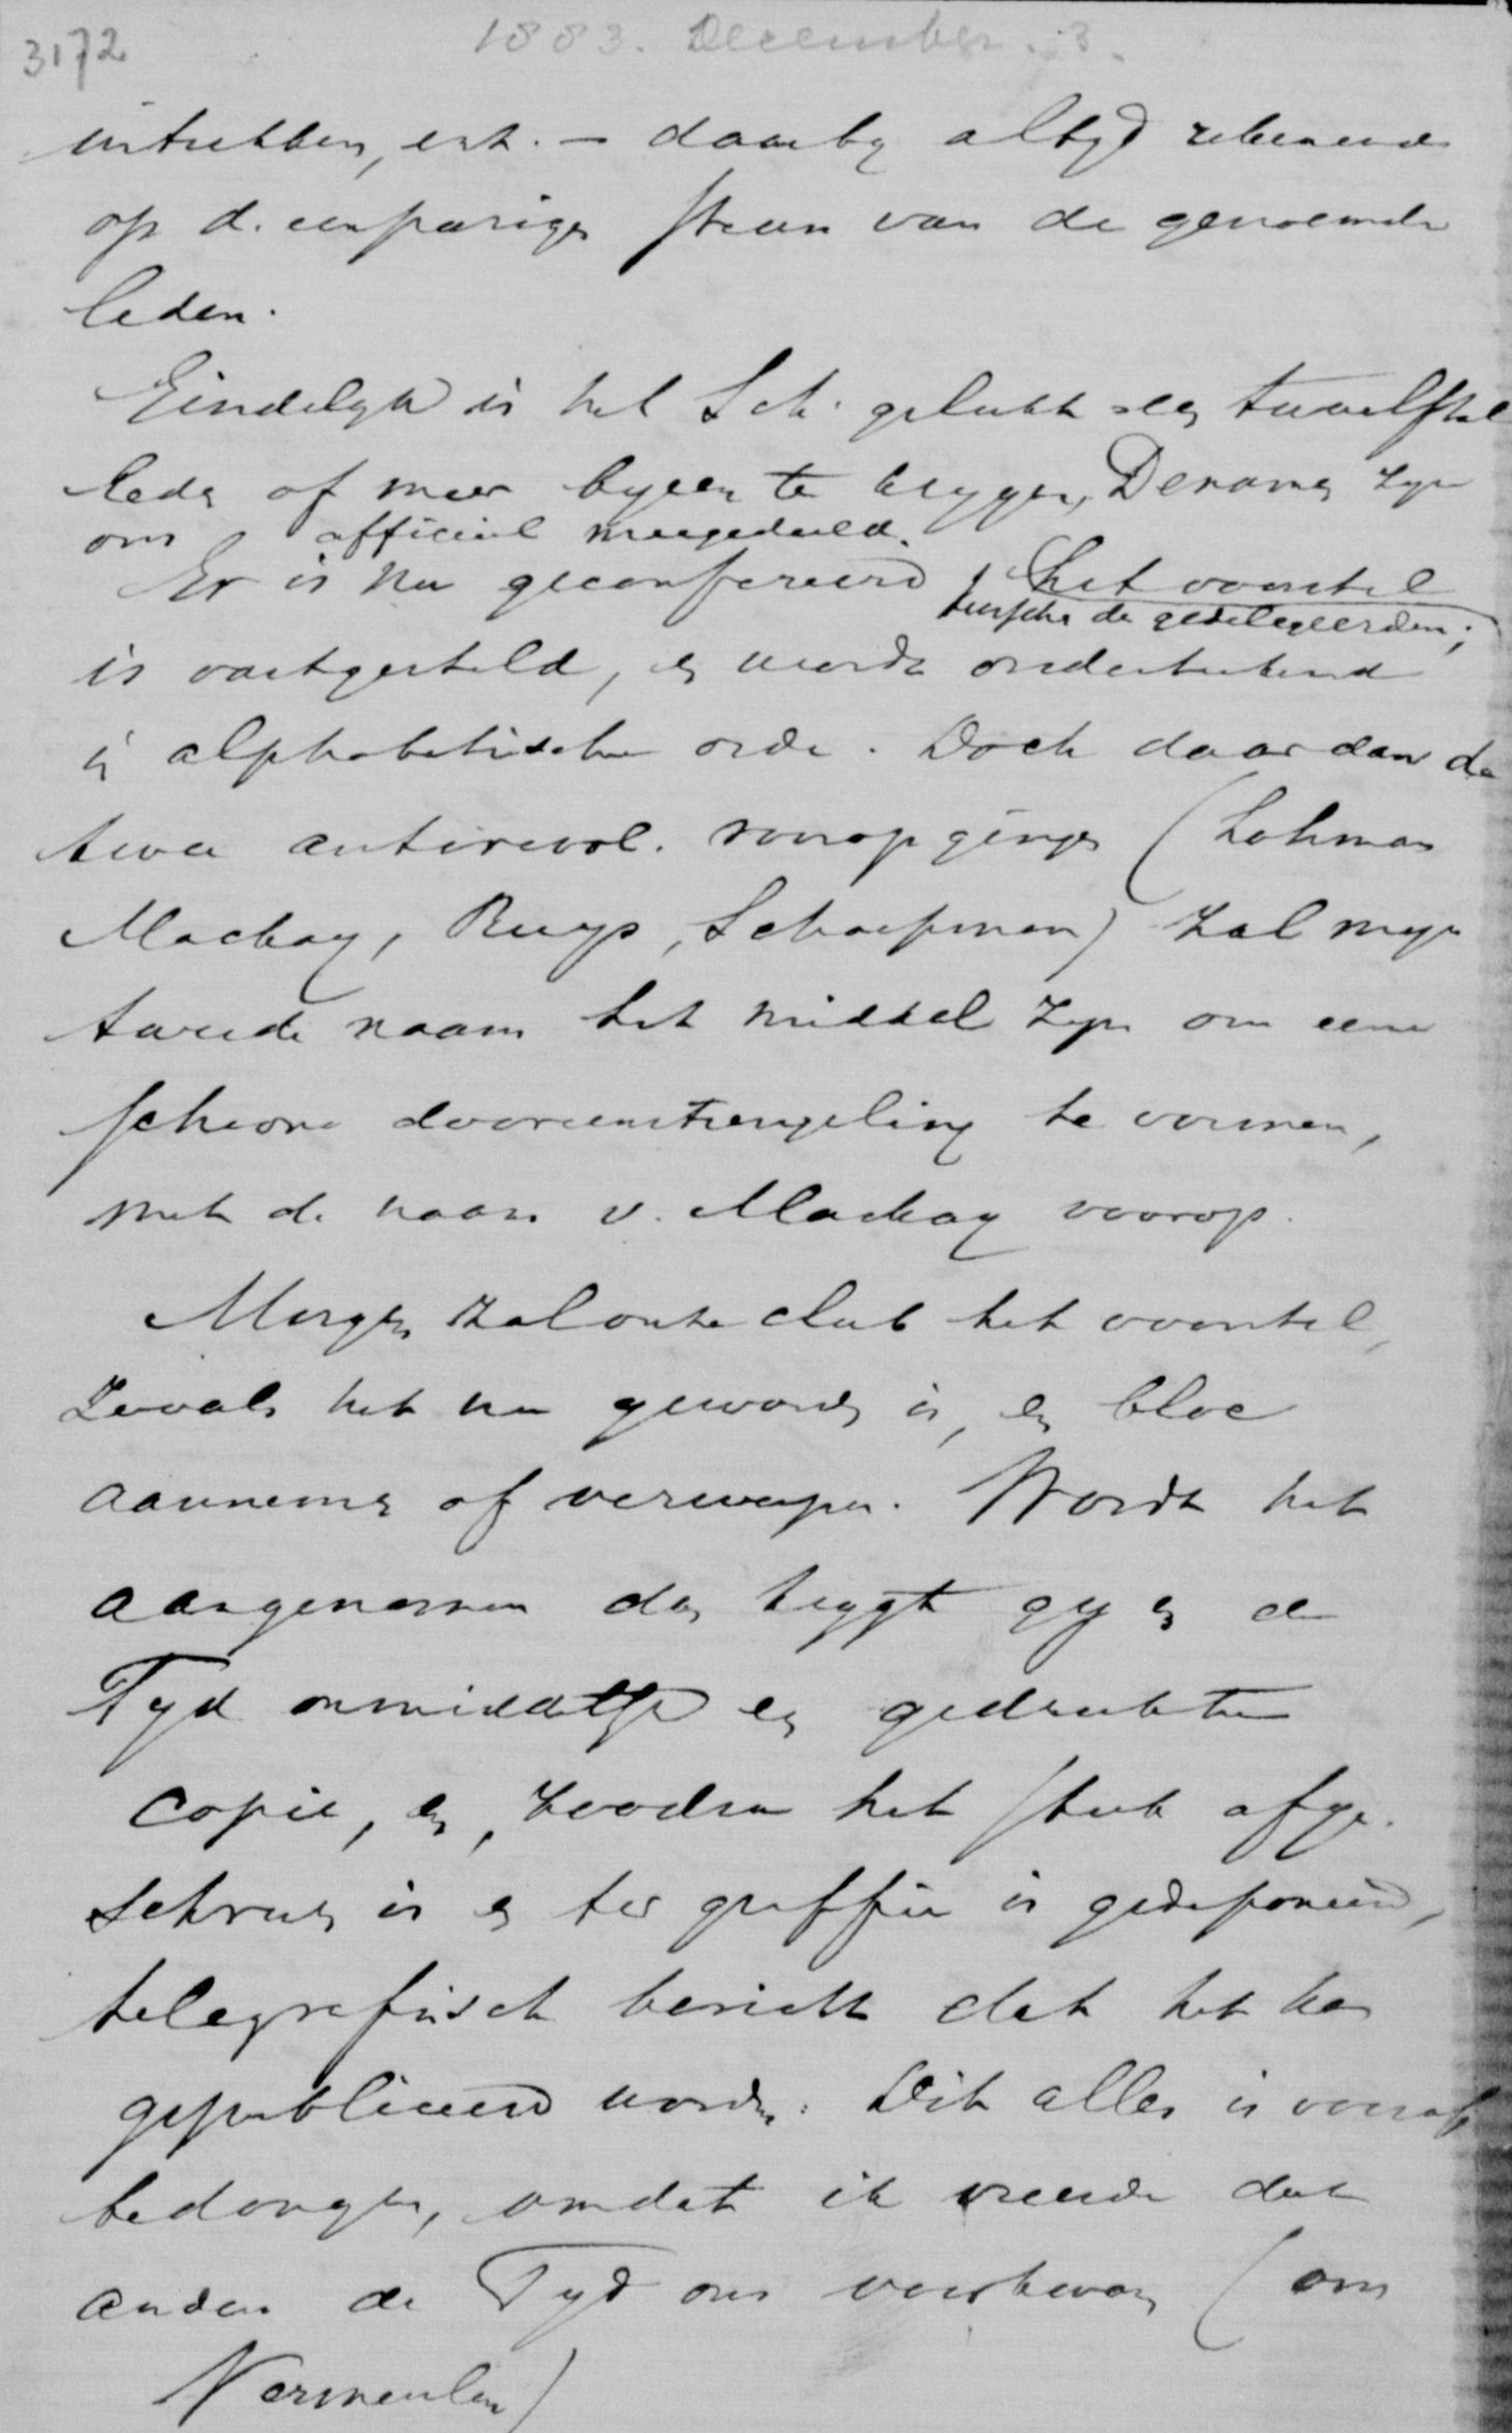 3172
1883. December. 3.
intrekken, enz. — daarby altyd rekenende
op d. eenparigen steun van de genoemde
leden.
Eindelyk is het Sch. gelukt een twaalftal
leden of meer byeen te krygen, De namen zyn
ons officieel meegedeeld.
Er is nu geconfereerd tusschen de gedelegeerden; Het voorstel
is vastgesteld, en wordt ondertekend
in alphabetische orde. Doch daar dan de
twee antirevol. voorop gingen (Lohman
Mackay, Ruys, Schaepman) zal myn
tweede naam het middel zyn om eene
schoone dooreenstrengeling te vormen,
met de naam v. Mackay voorop.
Morgen zal onze club het voorstel,
zooals het nu geworden is, en bloc
aannemen of verwerpen. Wordt het
aangenomen dan krygt gy en de
Tyd onmiddellyk een gedrukte
copie, en, zoodra het stuk afge-
schreven is en ter griffie is gedeponeerd,
telegrafisch bericht dat het kan
gepubliceerd worden. Dit alles is vooraf
bedongen, omdat ik vreesde dat
anders de Tyd ons voorkwam (om
Vermeulen)